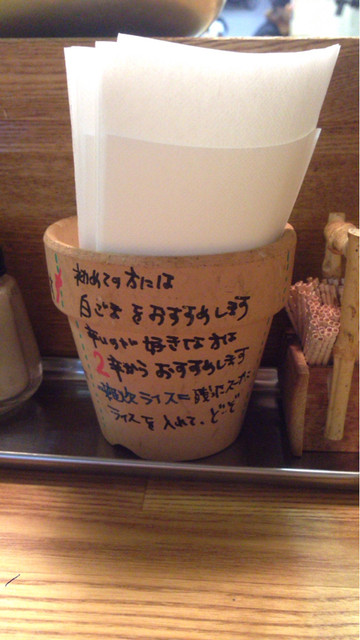 初めての方には
白ごまをおすすめします
辛いのが好きな方は
2辛からおすすめします
ライス=スープに
ライスを入れて、どーぞ